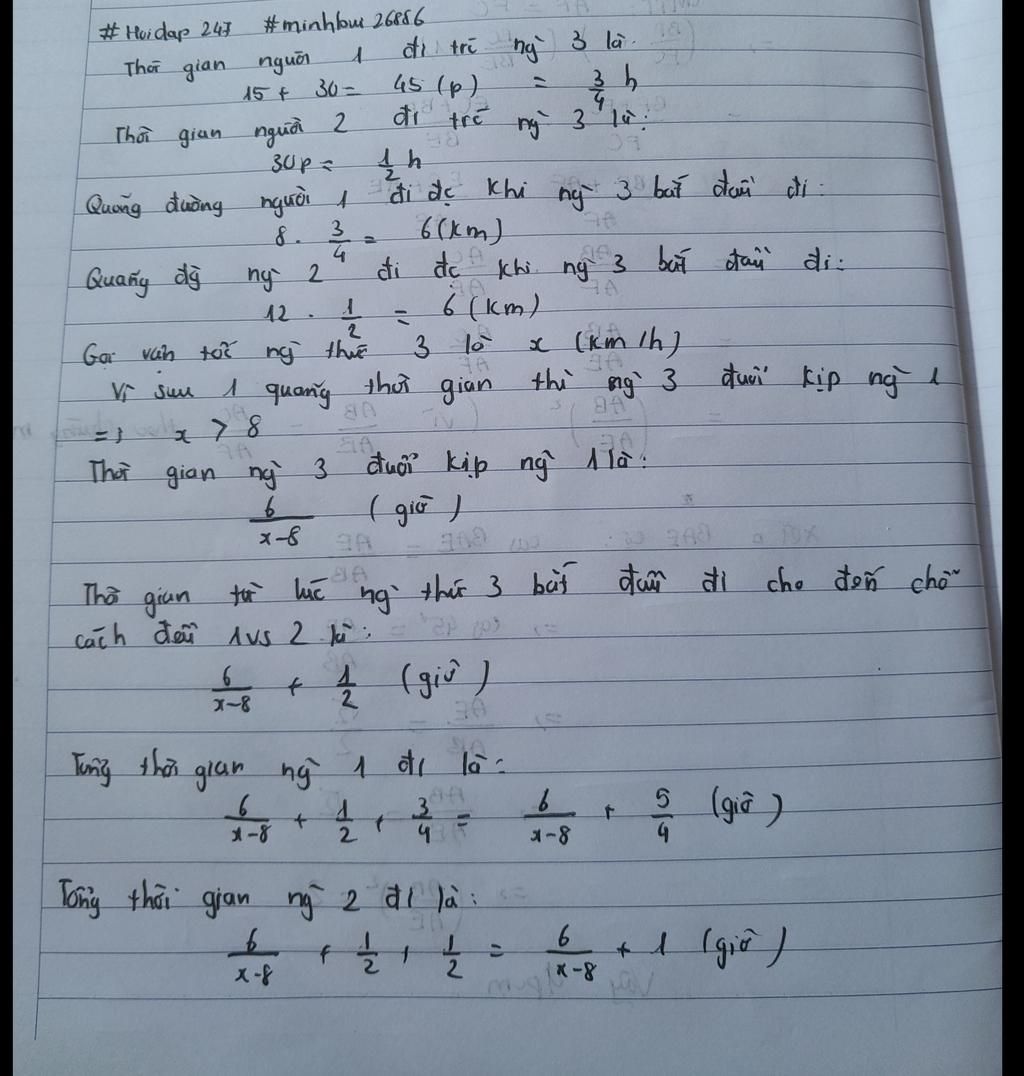 # Hoidap 247 # minhlow 26886
Thời gian người 1 đi trc ng` 3 là:
15 + 30 = 45 (p) = 3/4 h
Thời gian người 2 đi trc ng` 3 là:
30p = 1/2 h
Quãng đường người 1 đi đc khi ng` 3 bắt đầu đi:
8 . 3/4 = 6 (km)
Quãng đg` ng` 2 đi đc khi ng` 3 bắt đầu đi:
12 . 1/2 = 6 (km)
Gọi vận tốc ng` thứ 3 là x (km/h)
Vì sau 1 quãng thời gian thì ng` 3 đuổi kịp ng` 1
=> x > 8
Thời gian ng` 3 đuổi kịp ng` 1 là:
6/(x-8) (giờ)
Thời gian từ lúc ng` thứ 3 bắt đầu đi cho đến chỗ
cách đều 1 vs 2 là:
6/(x-8) + 1/2 (giờ)
Tổng thời gian ng` 1 đi là:
6/(x-8) + 1/2 + 3/4 = 6/(x-8) + 5/4 (giờ)
Tổng thời gian ng` 2 đi là:
6/(x-8) + 1/2 + 1/2 = 6/(x-8) + 1 (giờ)